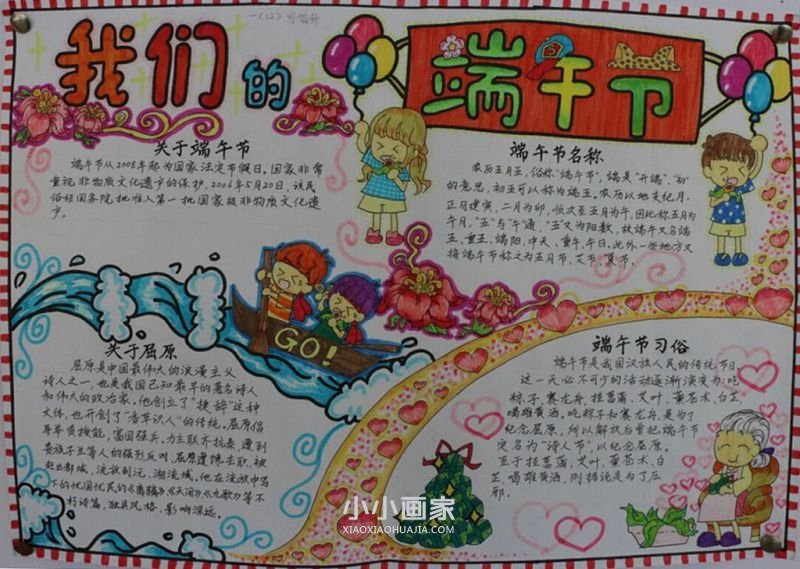 我们的
端午节
关于端午节
端午节从2008年起为国家法定节假日。国家非常
重视非物质文化遗产的保护,2006年5月20日,该民
俗经国务院批准入第一批国家级非物质文化遗
产。
端午节名称
农历五月五,俗称"端午节",端是"开端"、"初"
的意思,初五可以称为端五。农历以地支纪月,
正月建寅,二月为卯,顺次至五月为午,因此称五月为
午月,"五"与"午"通,"五"又为阳数,故端午又名端
五、重五、端阳、中天、重午、午日。此外一些地方又
将端午节称之为五月节、艾节、夏节。
GO!
关于屈原
屈原是中国最伟大的浪漫主义
诗人之一,也是我国已知最早的著名诗人
和伟大的政治家。他创立了"楚辞"这种
文体,也开创了"香草识人"的传统。屈原倡
导举贤授能,富国强兵,力主联齐抗秦,遭到
贵族子兰等人的强烈反对,屈原遭馋去职,被
赶出都城,流放到沅、湘流域。他在流放中写
下的忧国忧民的《离骚》《天问》《九歌》等不
朽诗篇,独具风格,影响深远。
端午节习俗
端午节是我国汉族人民的传统节日。
这一天必不可少的活动逐渐演变为:吃
粽子,赛龙舟,挂菖蒲、艾叶、薰苍术、白芷,
喝雄黄酒。吃粽子和赛龙舟,是为了
纪念屈原,所以解放后曾把端午节
定名为"诗人节",以纪念屈原。
至于挂菖蒲、艾叶,薰苍术、白
芷,喝雄黄酒,则据说是为了压
邪。
小小画家
XIAOXIAOHUAJIA.COM